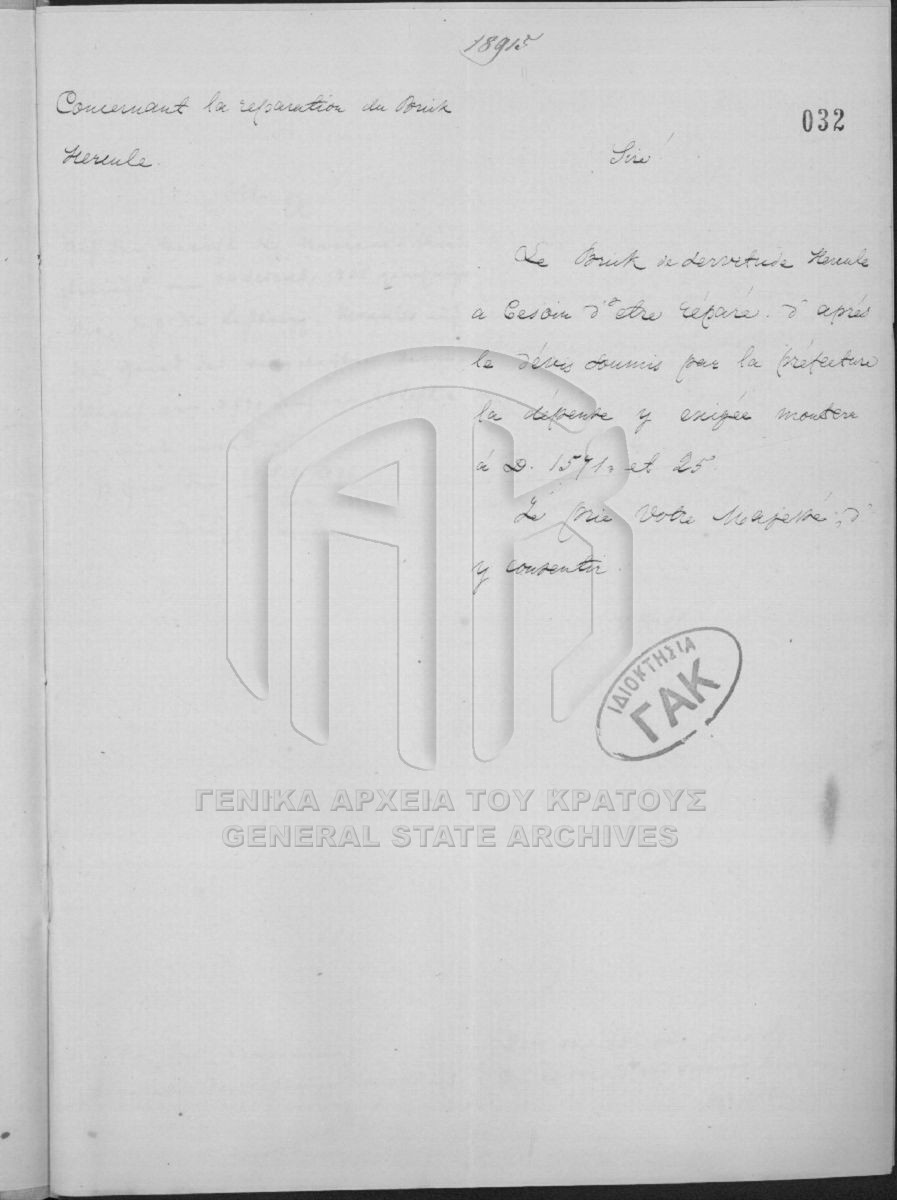 18915
Concernant la reparation du Brick
Hercule.
032
Sire!
Le Brick de servitude Hercule
a besoin d'etre réparé. d'aprés
le dévis soumis par la préfecture
la dépense y exigée montera
á D. 1571 et 25.
Je prie Votre Majesté, d'
y consentir.
ΙΔΙΟΚΤΗΣΙΑ
ΓΑΚ
ΓΕΝΙΚΑ ΑΡΧΕΙΑ ΤΟΥ ΚΡΑΤΟΥΣ
GENERAL STATE ARCHIVES